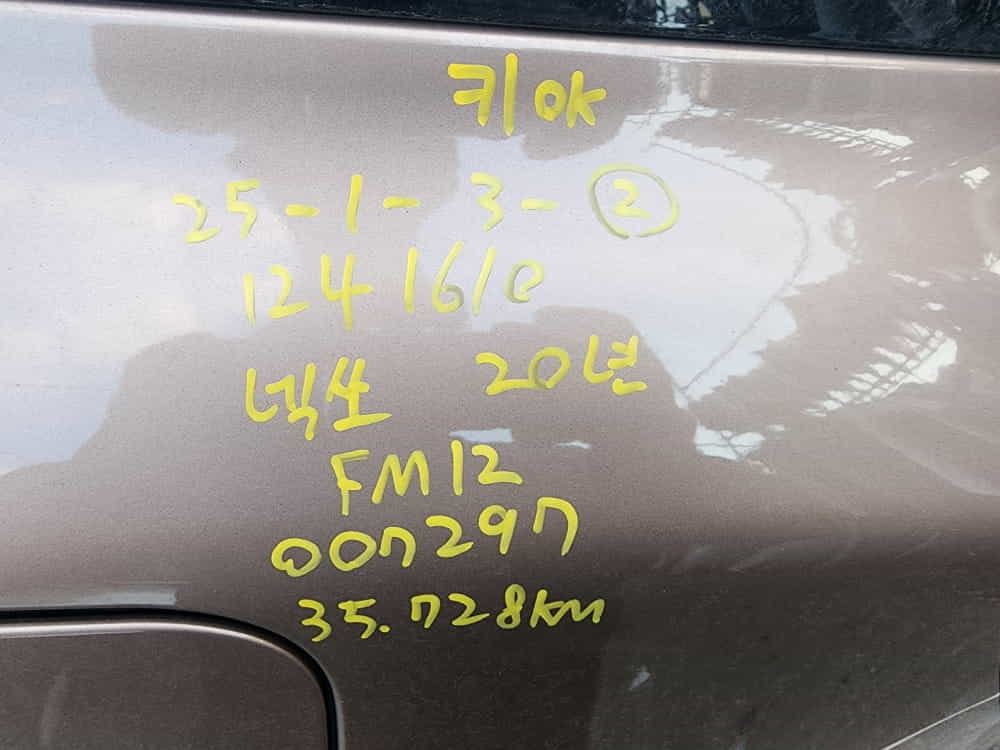 키OK
25-1-3-②
1241610
넥쏘 20년
FM12
007297
35.728km